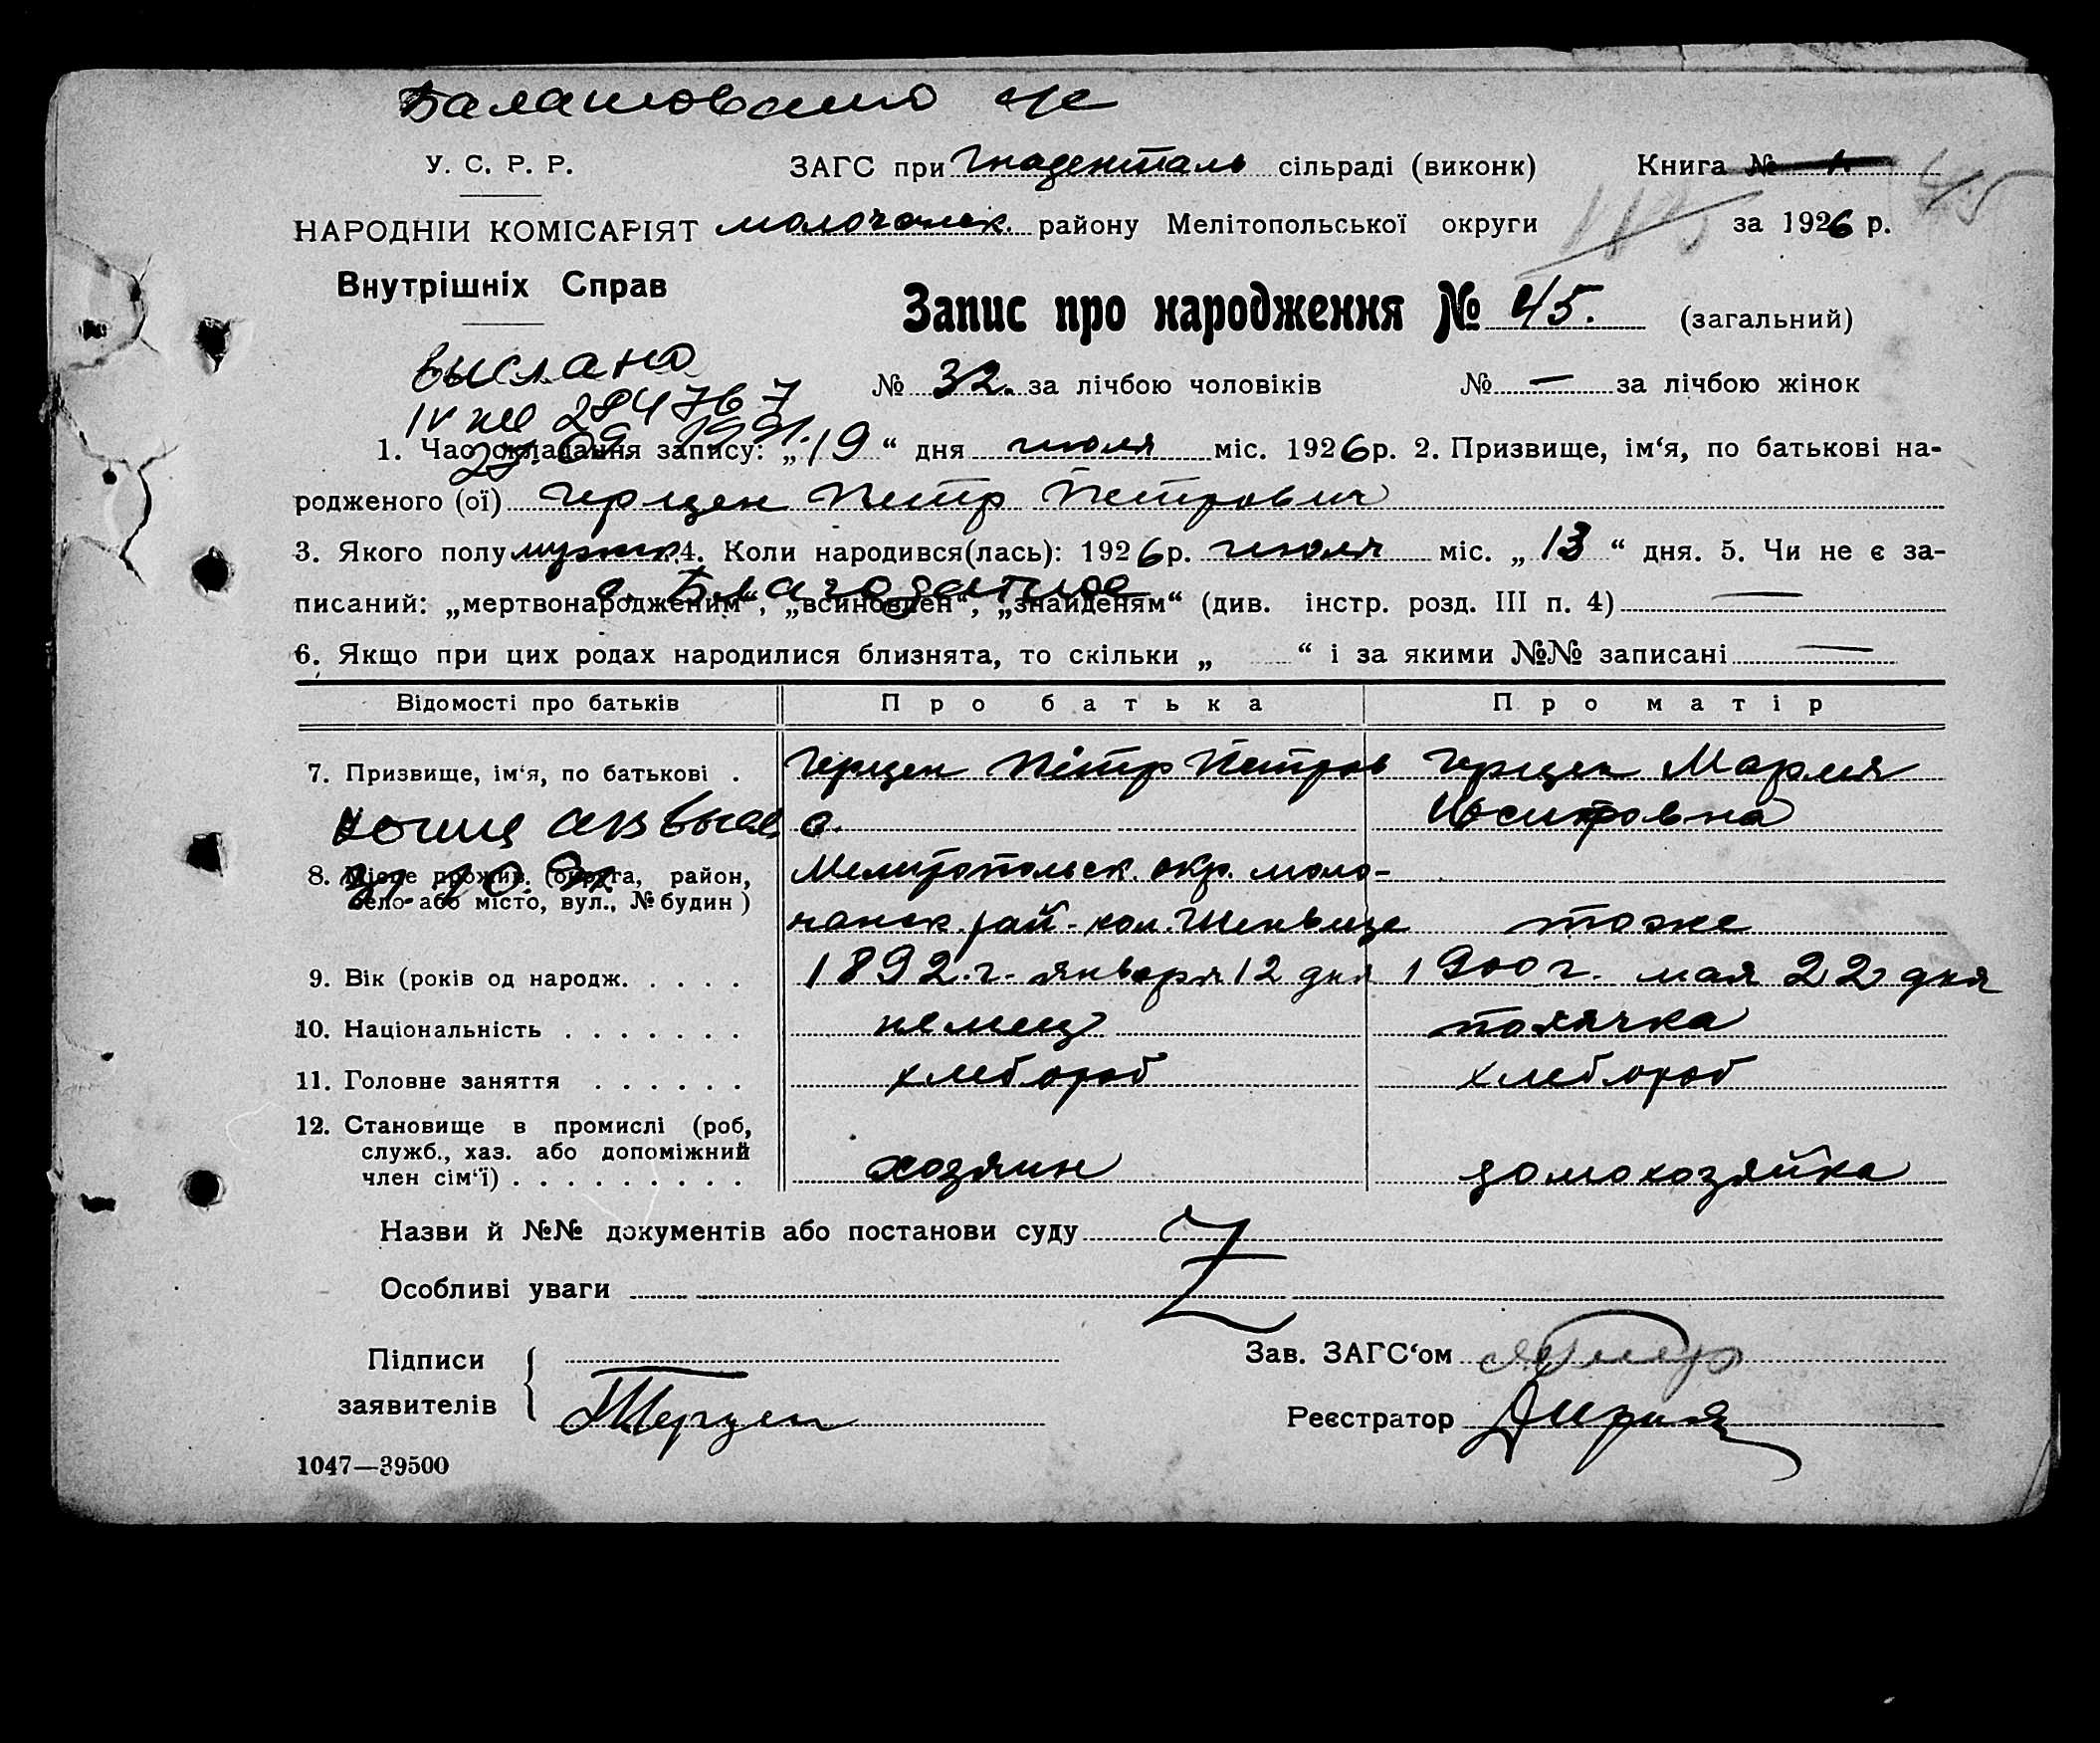 У. С. Р. Р. ЗАГС при Гнаденталь сільраді (виконк) Книга № 1.
45
НАРОДНІЙ КОМІСАРІЯТ молочанск. району Мелітопольської округи за 1926 р.
Внутрішніх Справ
Запис про народження № 45. (загальний)
выслано
№ 32. за лічбою чоловіків № — за лічбою жінок
IV 284767
27. 09. 1991.
1. Час складання запису: „19“ дня июля міс. 1926 р. 2. Призвище, ім‘я, по батькові на-
родженого (ої) Герцен Петр Петрович
3. Якого полу мужск. 4. Коли народився(лась): 1926 р. июля міс. „13“ дня. 5. Чи не є за-
с. Благодатное
писаний: „мертвонародженим“, „всиновлен“, „знайденям“ (див. інстр. розд. III п. 4) —
6. Якщо при цих родах народилися близнята, то скільки „ “ і за якими №№ записані —
Відомості про батьків Про батька Про матір
7. Призвище, ім‘я, по батькові . Герцен Пётр Петров Герцен Мария
8. Місце прожив. (округа, район, Мелитопольск. окр. моло-
село або місто, вул., № будин)
чанск. рай- кол. тоже
9. Вік (років од народж. . . . . 1892.г. января 12 дня 1900 г. мая 22 дня
10. Національність . . . . . . . немец полячка
11. Головне заняття . . . . . . хлебороб хлебороб
12. Становище в промислі (роб,
служб., хаз. або допоміжний
член сім‘ї) . . . . . . . . . хозяин домохозяйка
Назви й №№ документів або постанови суду
Особливі уваги
Підписи Зав. ЗАГС‘ом
заявителів Герцен Реєстратор
1047—39500